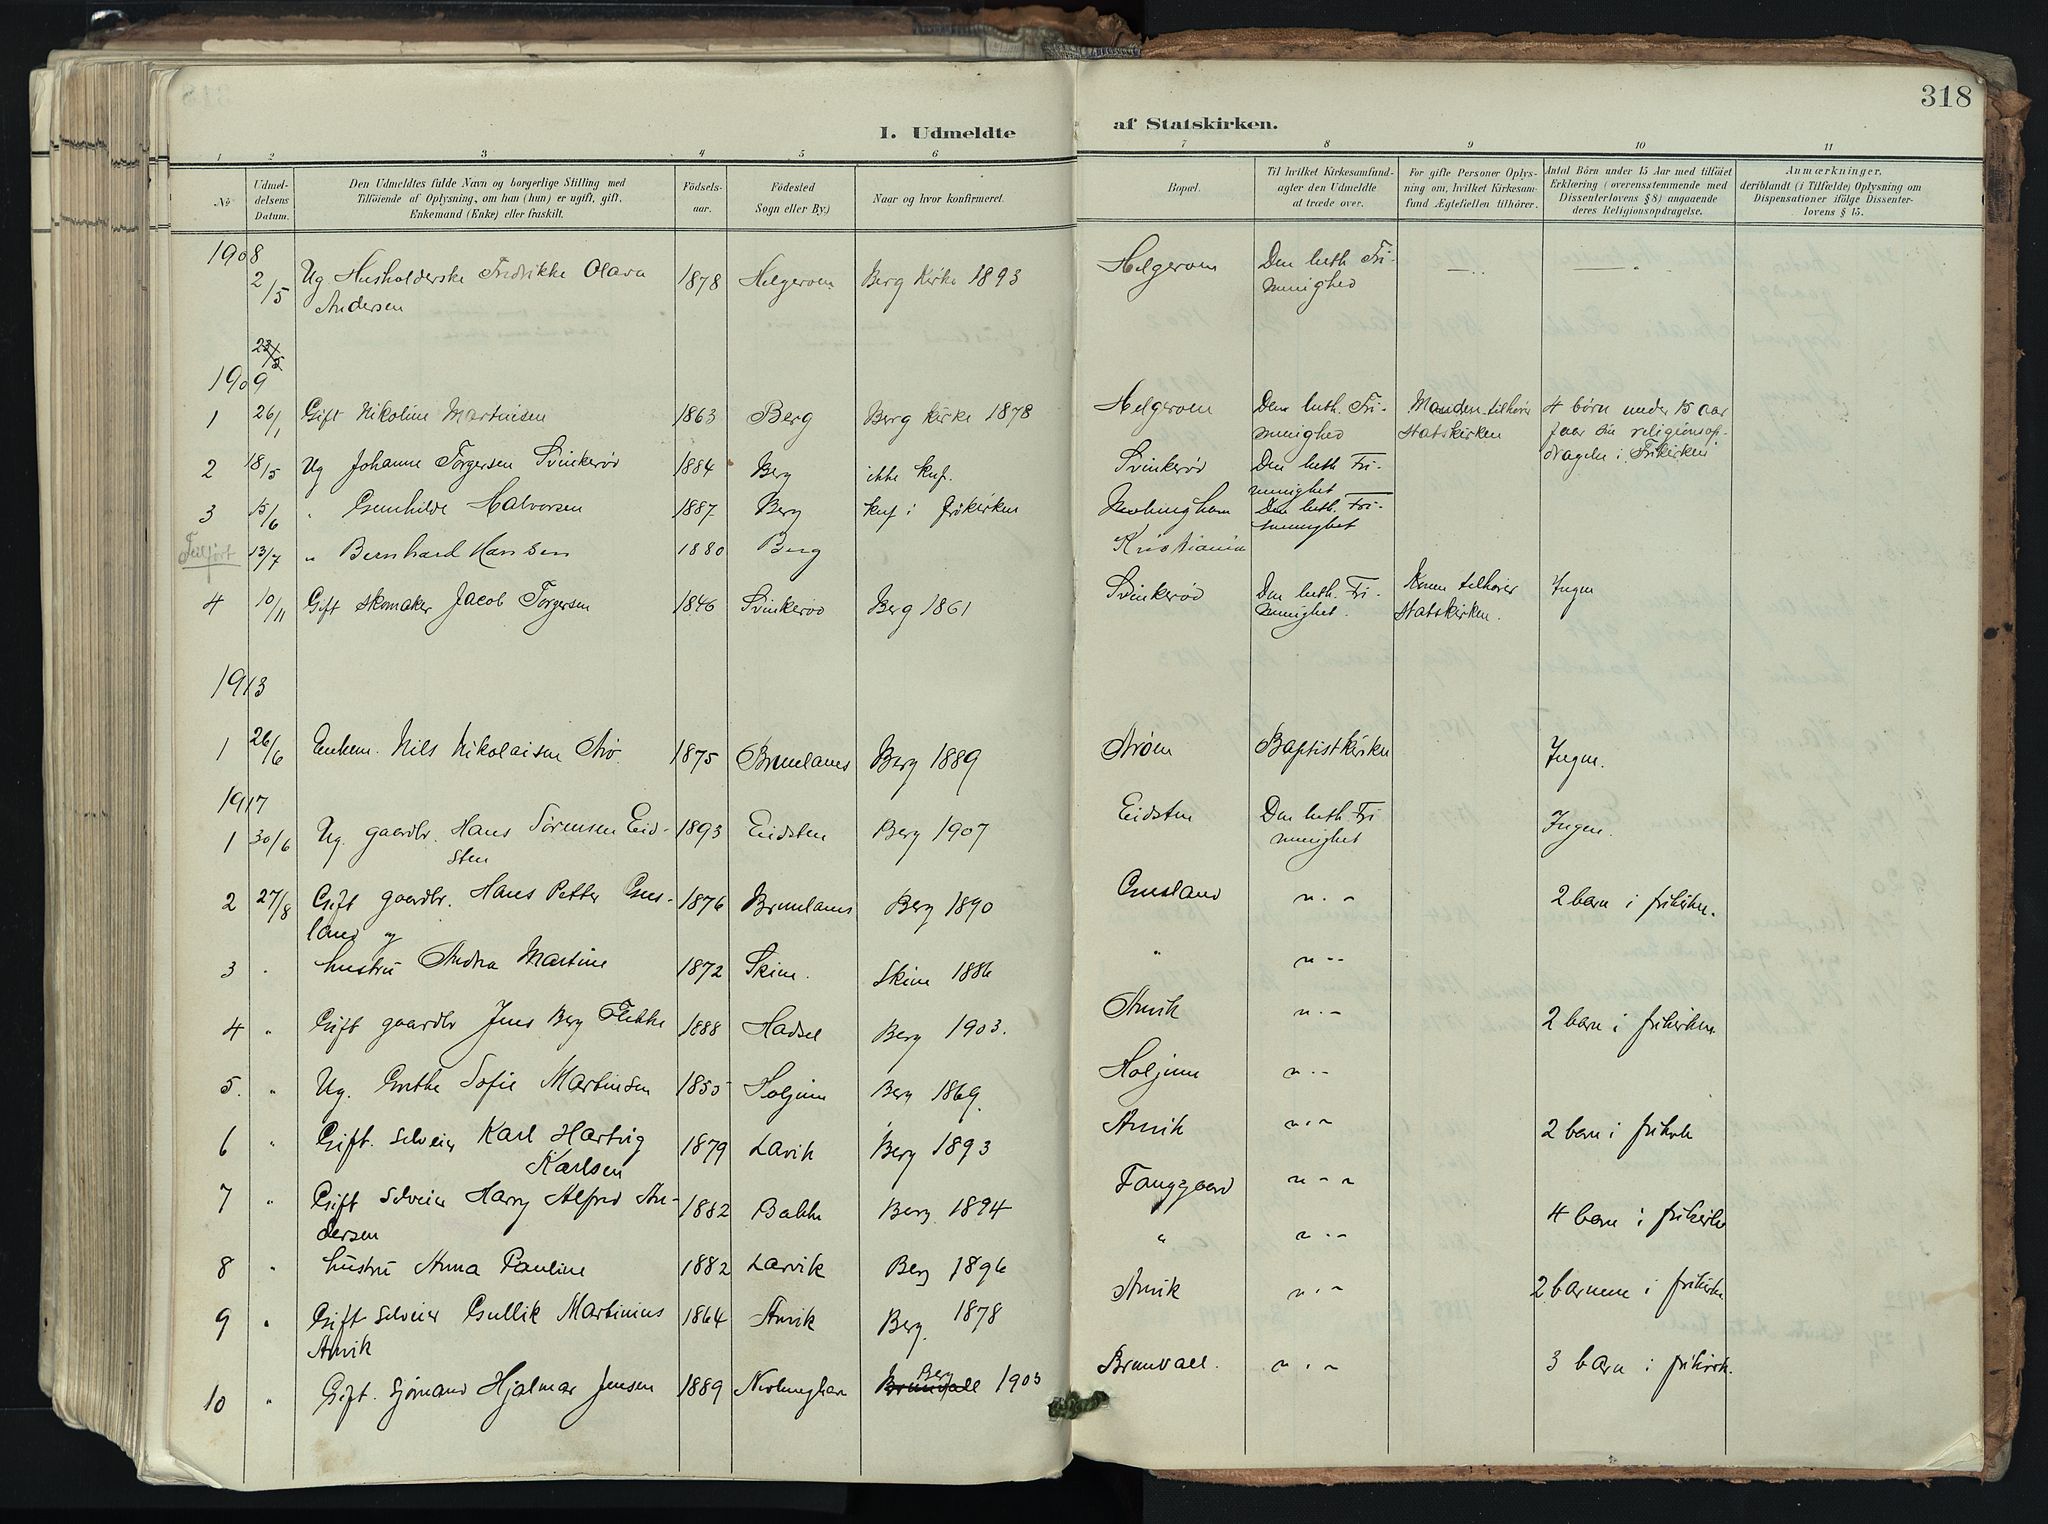 318
1. Udmeldte af Statskirken.
1 2 3 4 5 6 7 8 9 10 11
№
Udmel-
delsens
Datum.
Den Udmeldtes fulde Navn og borgerlige Stilling med
Tilföiende af Oplysning, om han (hun) er ugift, gift,
Enkemand (Enke) eller fraskilt.
Födsels-
aar.
Födested
Sogn eller By.)
Naar og hvor konfirmeret.
Bopæl.
Til hvilket Kirkesamfund-
agter den Udmeldte
at træde over.
For gifte Personer Oplys-
ning om, hvilket Kirkesam-
fund Ægtefællen tilhörer.
Antal Börn under 15 Aar med tilföiet
Erklæring (overensstemmende med
Dissenterlovens § 8) angaaende
deres Religionsopdragelse.
Anmærkninger,
deriblandt (i Tilfælde) Oplysning om
Dispensationer ifölge Dissenter-
lovens § 15.
1908
2/5 Ug Husholderske Fredrikke Olava 1878 Helgeroen Berg Kirke 1893 Helgeroen Den luth. Fri-
Andersen menighed
23/5
1909
1 26/1 Gift Nikoline Martinisen 1863 Berg Berg kirke 1878 Helgeroen Den luth. Fri- Manden tilhører 4 børn under 15 aar
menighed Statskirken faar sin religionsop-
dragelse i Frikirken
2 18/5 Ug Johanne Torgersen Svinkerød 1884 Berg ikke knf. Svinkerød Den luth Fri-
menighet
3 15/6 " Gunhilde Halvorsen 1887 Berg knf i frikirken Nevlungham Den luth. Fri-
menighet
Feilført 13/7 " Bernhard Hansen 1880 Berg Kristiania
4 10/11 Gift skomaker Jacob Torgersen 1846 Svinkerød Berg 1861 Svinkerød Den luth. Fri- Konen tilhører Ingen
menighet. Statskirken.
1913
1 26/6 Enkem. Nils Nikolaisen 1875 Brunlanes Berg 1889 Strøm Baptistkirken Ingen.
1917
1 30/6 Ug. gaardbr. Hans Sørensen Eid- 1893 Eidsten Berg 1907 Eidsten Den luth. Fri Ingen.
sten menighet
2 27/8 Gift gaardbr. Hans Petter Gus- 1876 Brunlanes Berg 1890 Gusland " - " 2 barn i frikirken.
land og
3 " hustru Andrea Martine 1872 Skien. Skien 1886 " " - "
4 " Gift gaardbr Jens Berg 1888 Hadsel Berg 1903. Arvik " - " 2 barn i frikirken.
5. " Ug. Grethe Sofie Martinsen 1855 Holjum Berg 1869. Holjum " - "
6 " Gift. selveier Karl Hartvig 1879 Larvik Berg 1893 Arvik " - " 2 barn i frikirk
Karlsen
7 " Gift selveier Harry Alfred An- 1882 Bakke Berg 1894 Fauggaard " - " 4 barn i frikirke
dersen
8 " hustru Anna Pauline 1882 Larvik Berg 1896 " " - "
9 " Gift selveier Gullik Martinius 1864 Arvik Berg. 1878 Arvik " - " 2 barnene i frikirke
Arvik
10 " Gift. sjømand Hjalmar Jensen 1889 Nevlungham Brunvall Berg 1903 Brunvall. " - " 3 barn i frikirk.